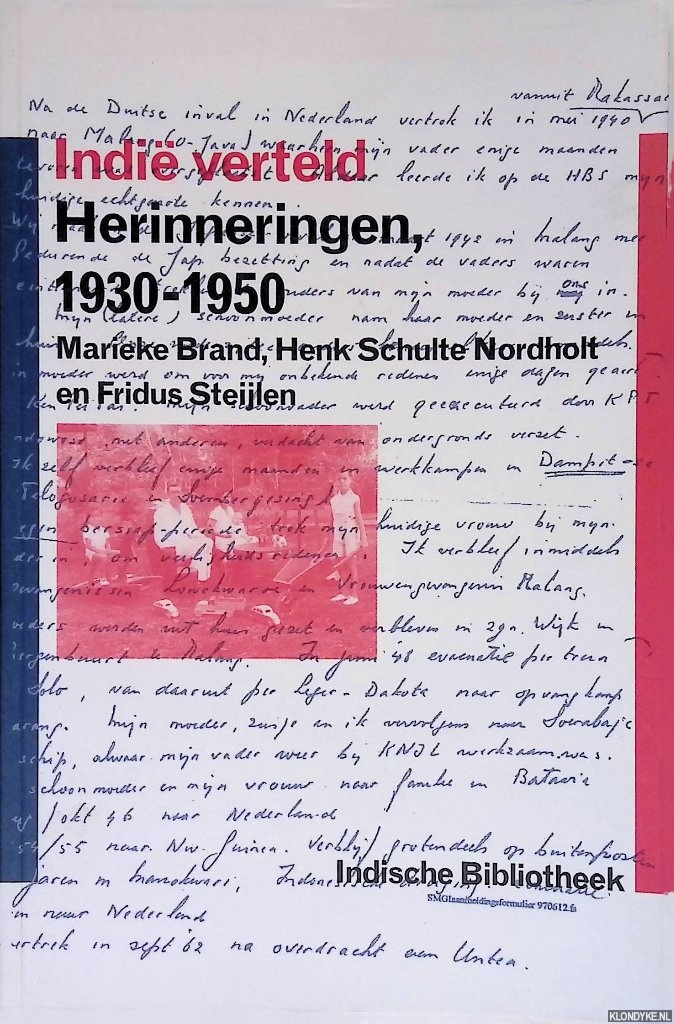 vanuit Makassar
Na de Duitse inval in Nederland vertrok ik in mei 1940
naar Malang (O-Java) waarheen mijn vader enige maanden
Indië verteld
leerde ik op de HBS mijn
huidige echtgenote kennen.
Herinneringen,
1942 in Malang mee
Gedurende de Jap. bezetting en nadat de vaders waren
1930-1950
ouders van mijn moeder bij ons in.
Mijn (latere) schoonmoeder nam haar moeder en zuster in
Marieke Brand, Henk Schulte Nordholt
moeder werd om voor mij onbekende redenen enige dagen
en Fridus Steijlen
schoonvader werd geëxecuteerd door
met anderen, verdacht van ondergronds verzet.
Ik zelf verbleef enige maanden in werkkampen in Dampit
Telogosarie en Soembergesing
bersiap-periode trok mijn huidige vrouw bij mijn
in, om veiligheidsredenen. Ik verbleef inmiddels
Lowokwaroe, en Vrouwengevangenis Malang.
werden uit hun gezet en verbleven in zgn. Wijk in
Bergenbuurt te Malang. In juni 46 evacuatie per trein
Solo, van daaruit per Leger-Dakota naar opvangkamp
Mijn moeder, zusje en ik vervolgens naar Soerabaja
schip, alwaar mijn vader weer bij KNIL werkzaam was.
schoonmoeder en mijn vrouw naar familie in Batavia
/okt 46 naar Nederland
54/55 naar Nw. Guinea. Verblijf grotendeels op buitenposten
jaren in Manokwari, Indonesische
Indische Bibliotheek
SMGIaanmeldingsformulier 970612.fs
en naar Nederland
vertrek in sept '62 na overdracht aan Untea.
KLONDYKE.NL